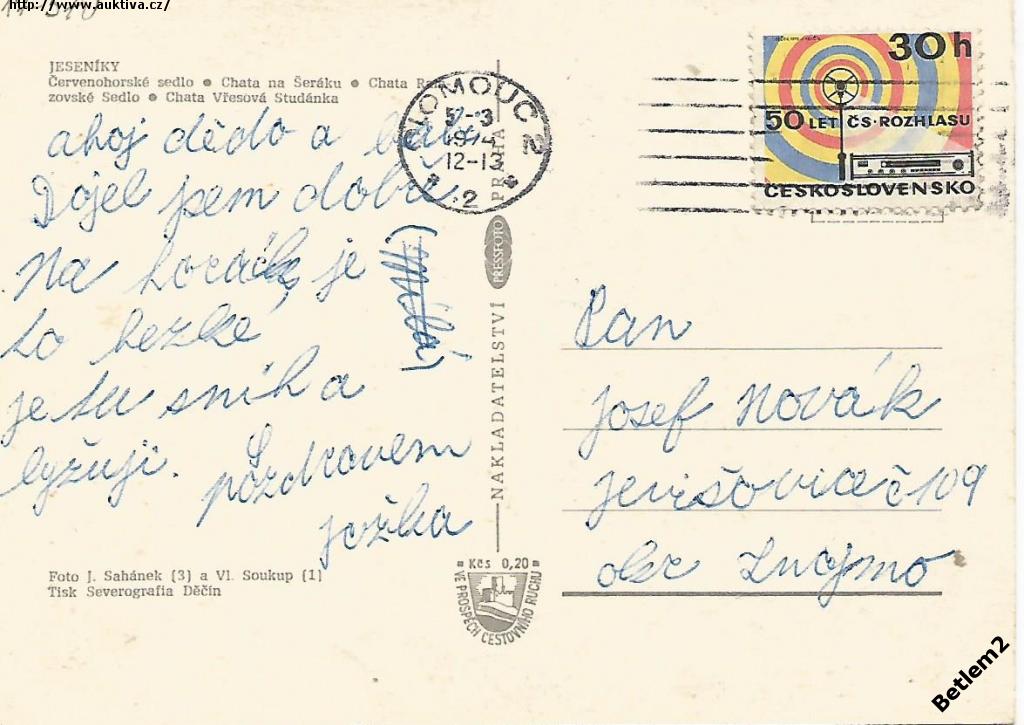 http://www.auktiva.cz/
JESENÍKY
Červenohorské sedlo • Chata na Šeráku • Chata Ra
zovské Sedlo • Chata Vřesová Studánka
ahoj dědo a
Dojel jsem dobře
Na horách je
to hezké
je tu sníh a
lyžuji.
S pozdravem
jožka
Foto J. Sahánek (3) a Vl. Soukup (1)
Tisk Severografia Děčín
OLOMOUC 2
12-13
2
NAKLADATELSTVÍ PRESSFOTO PRAHA
Kčs 0,20
VE PROSPĚCH CESTOVNÍHO RUCHU
30h
50 LET ČS. ROZHLASU
ČESKOSLOVENSKO
Pan
josef Novák
jevišovice č 109
okr Znojmo
Betlem2